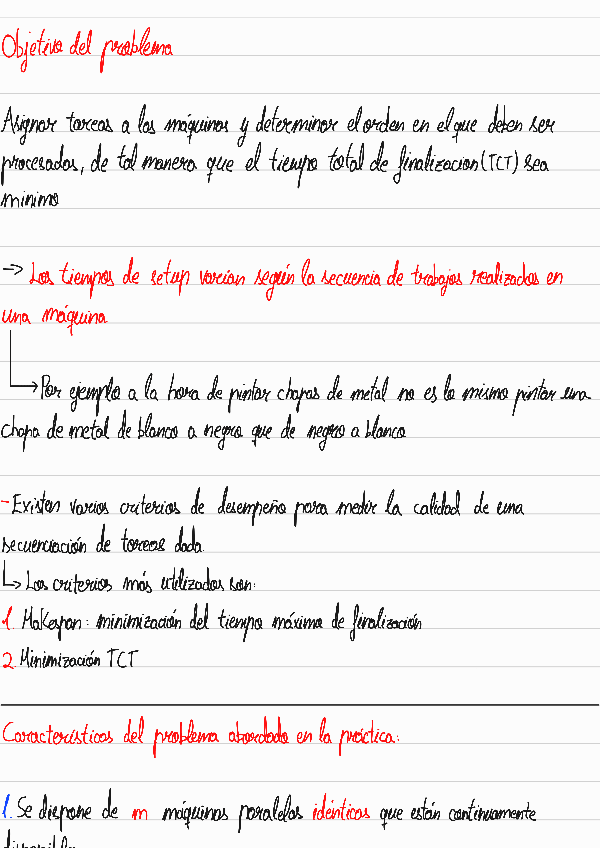 Objetivo del problema
Asignar tareas a las máquinas y determinar el orden en el que deben ser
procesadas, de tal manera que el tiempo total de finalizacion (TCT) sea
minimo
→ Los tiempos de setup varian según la secuencia de trabajos realizados en
una máquina
→ Por ejemplo a la hora de pintar chapas de metal no es lo mismo pintar una
chapa de metal de blanco a negro que de negro a blanco
- Existen varios criterios de desempeño para medir la calidad de una
secuenciación de tareas dada.
↳ Los criterios más utilizados son:
1. Makespan: minimización del tiempo máximo de finalización
2. Minimización TCT
Características del problema abordado en la práctica:
1. Se dispone de m máquinas paralelas idénticas que están continuamente